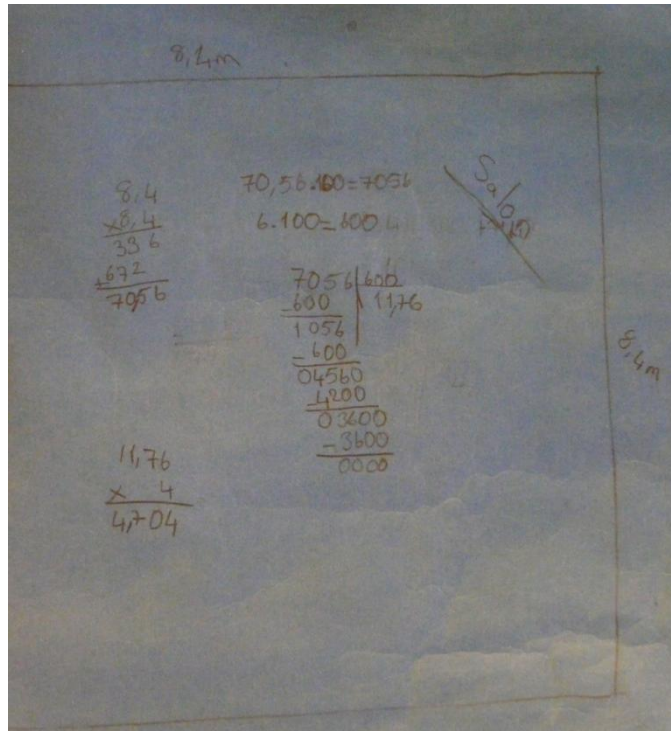 8,4m
8,4
x8,4
336
+672
70,56
70,56.100=7056
6.100=600
Salo
7056|600
-600 11,76
1056
-600
04560
-4200
03600
-3600
0000
8,4m
11,76
x 4
4,704